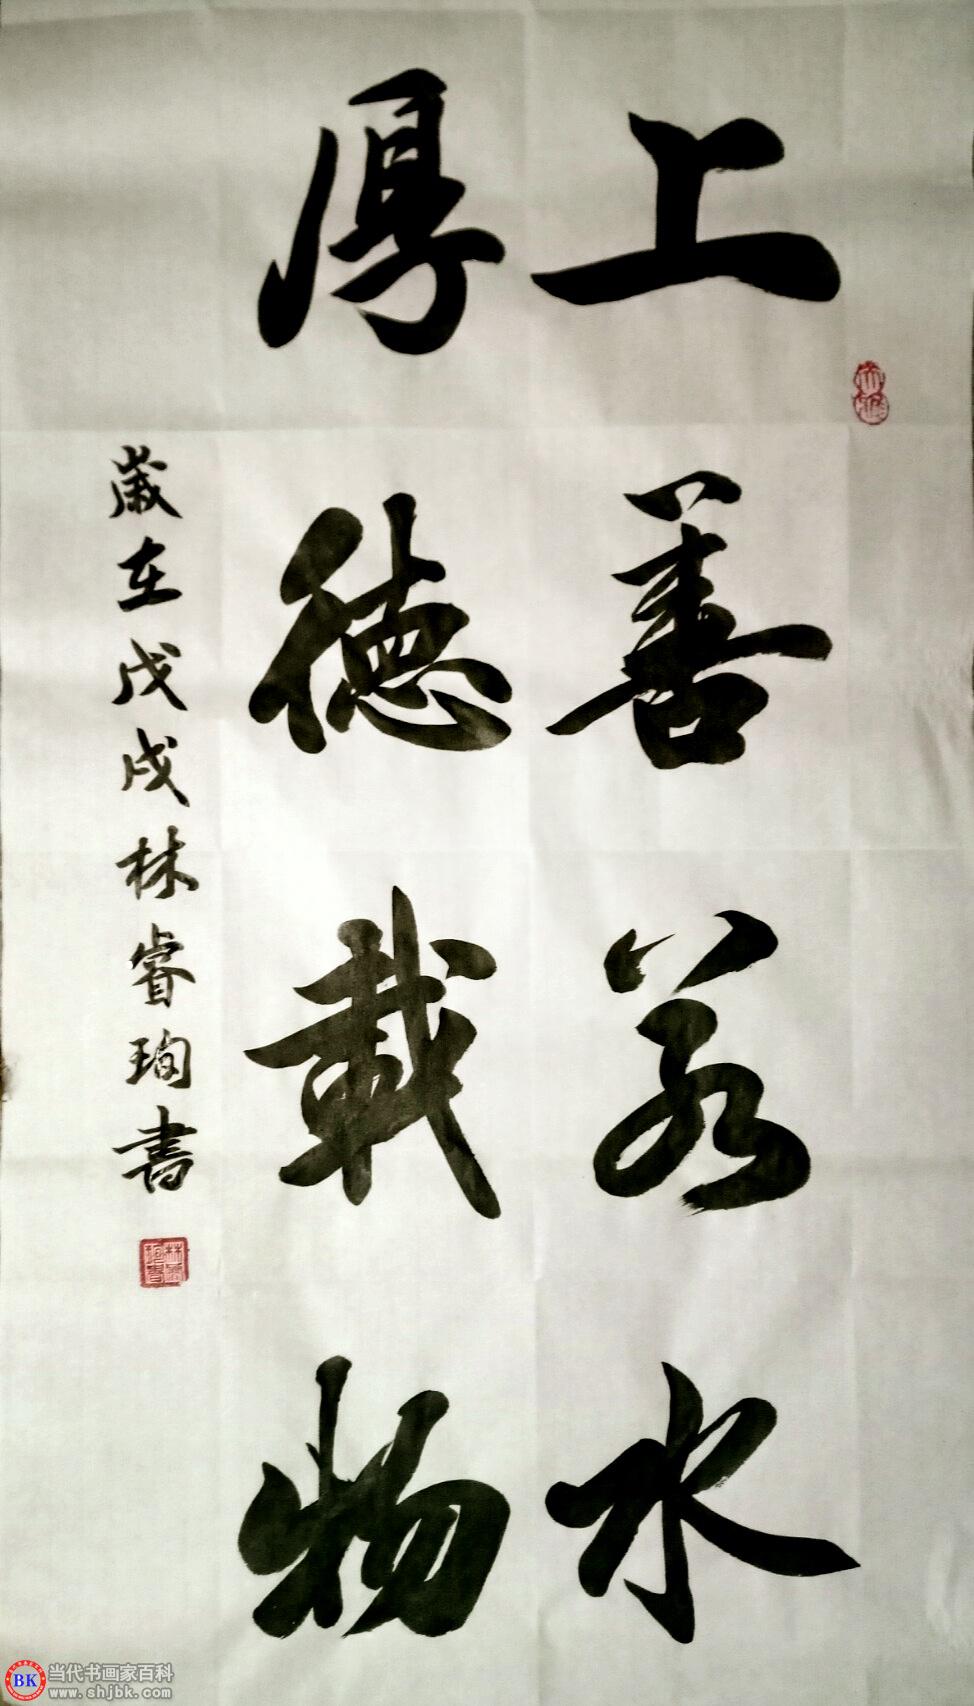 上善若水
厚德载物
歲在戊戌林睿珣書
BK 当代书画家百科
www.shjbk.com